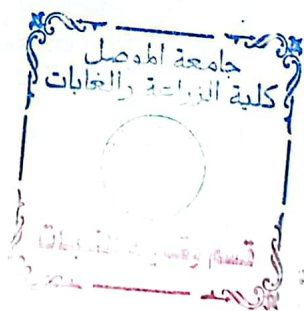 جامعة الموصل
كلية الزراعة والغابات
قسم وقاية النباتات